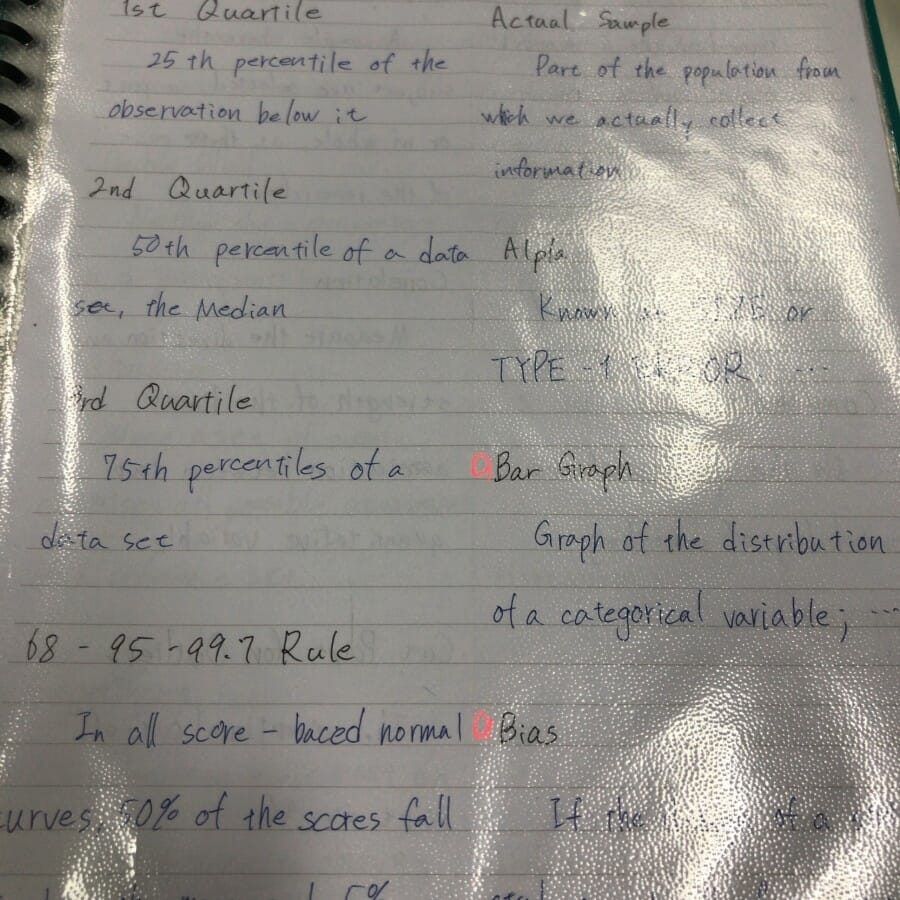 1st Quartile
25 th percentile of the
observation below it
2nd Quartile
50th percentile of a data
set, the Median
3rd Quartile
75th percentiles of a
data set
68 - 95 - 99.7 Rule
In all score - baced normal
curves, 50% of the scores fall
5%
Actual Sample
Part of the population from
which we actually collect
information
Alpla
Known or
TYPE - 1 ERROR. ...
Bar Graph
Graph of the distribution
of a categorical variable; ...
Bias
If the of a